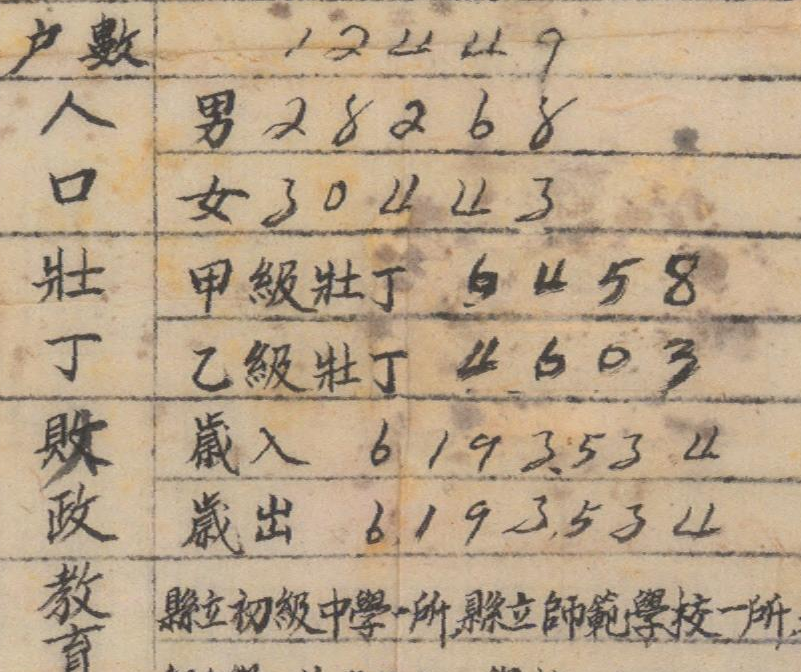 户數 12449
人口 男 28268
女 30443
壯丁 甲級壯丁 6458
乙級壯丁 4603
敗政 歲入 6193534
歲出 6193534
教育 縣立初級中學一所縣立師範學校一所